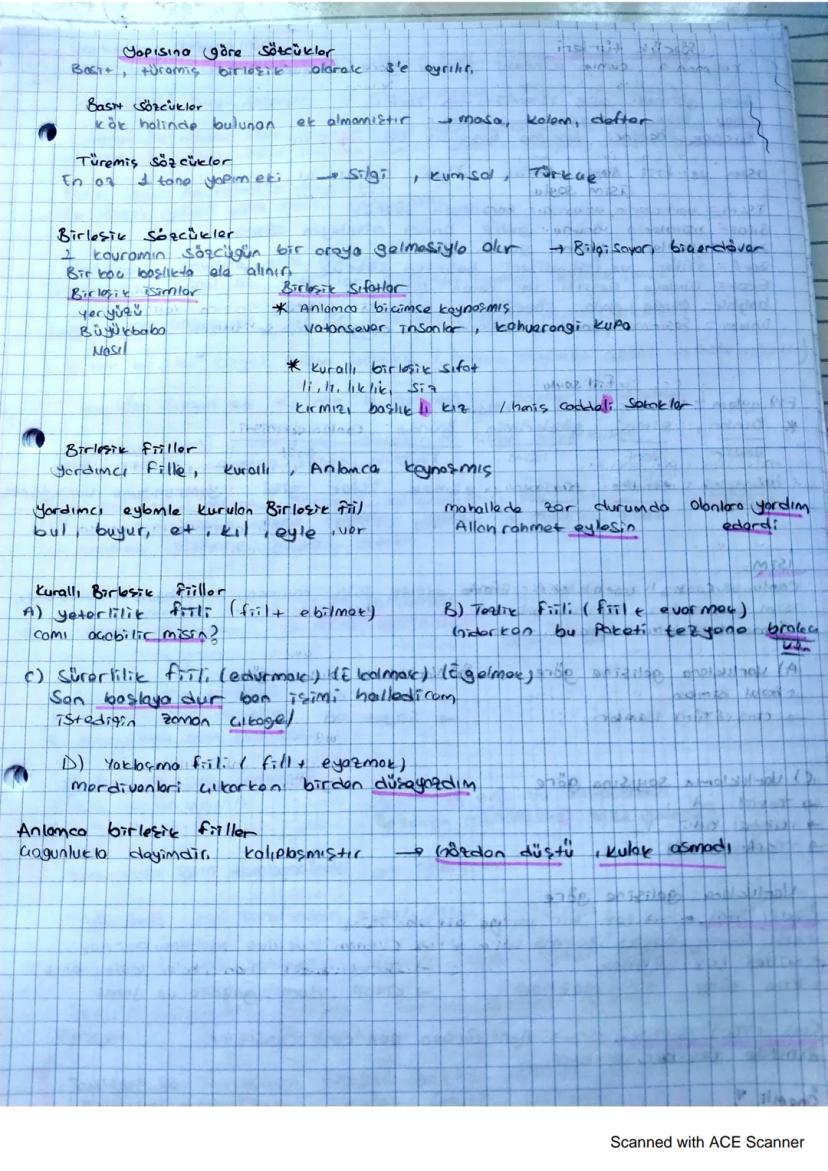 Yapısına göre sözcükler
Basit, türemiş birleşik olarak 3'e ayrılır.
Basit sözcükler
Kök halinde bulunan ek almamıştır → masa, kalem, defter
Türemiş sözcükler
En az 1 tane yapım eki → silgi, kumsal, Türkçe
Birleşik sözcükler
2 kavramın sözcüğün bir araya gelmesiyle olur → Bilgisayar, biçerdöver
Bir kaç başlıkta ele alınır.
Birleşik isimler
yeryüzü
Büyükbaba
Nasıl
Birleşik sıfatlar
* Anlamca biçimse kaynaşmış
vatansever insanlar, kahverengi kupa
* Kurallı birleşik sıfat
li, lı, lık lik, siz
kırmızı başlıklı kız / geniş caddeli sokaklar
Birleşik fiiller
yardımcı fiille, kurallı, Anlamca kaynaşmış
Yardımcı eylemle kurulan Birleşik fiil
bul, buyur, et, kıl, eyle, ver
mahallede zor durumda olanlara yardım
ederdi
Allah rahmet eylesin
Kurallı Birleşik fiiller
A) yeterlilik fiili (fiil + ebilmek)
camı açabilir misin?
B) Tezlik fiili (fiil + evermek)
Giderken bu paketi teyzene
C) Sürerlilik fiili (edurmak) (E kalmak) (Egelmek)
Sen başlaya dur ben işimi halledicem
istediğin zaman çıkagel
D) Yaklaşma fiili (fiil + eyazmak)
merdivenleri çıkarken birden düşeyazdım
Anlamca birleşik fiiller
Çoğunlukla deyimdir, kalıplaşmıştır → Gözden düştü, kulak asmadı
Scanned with ACE Scanner